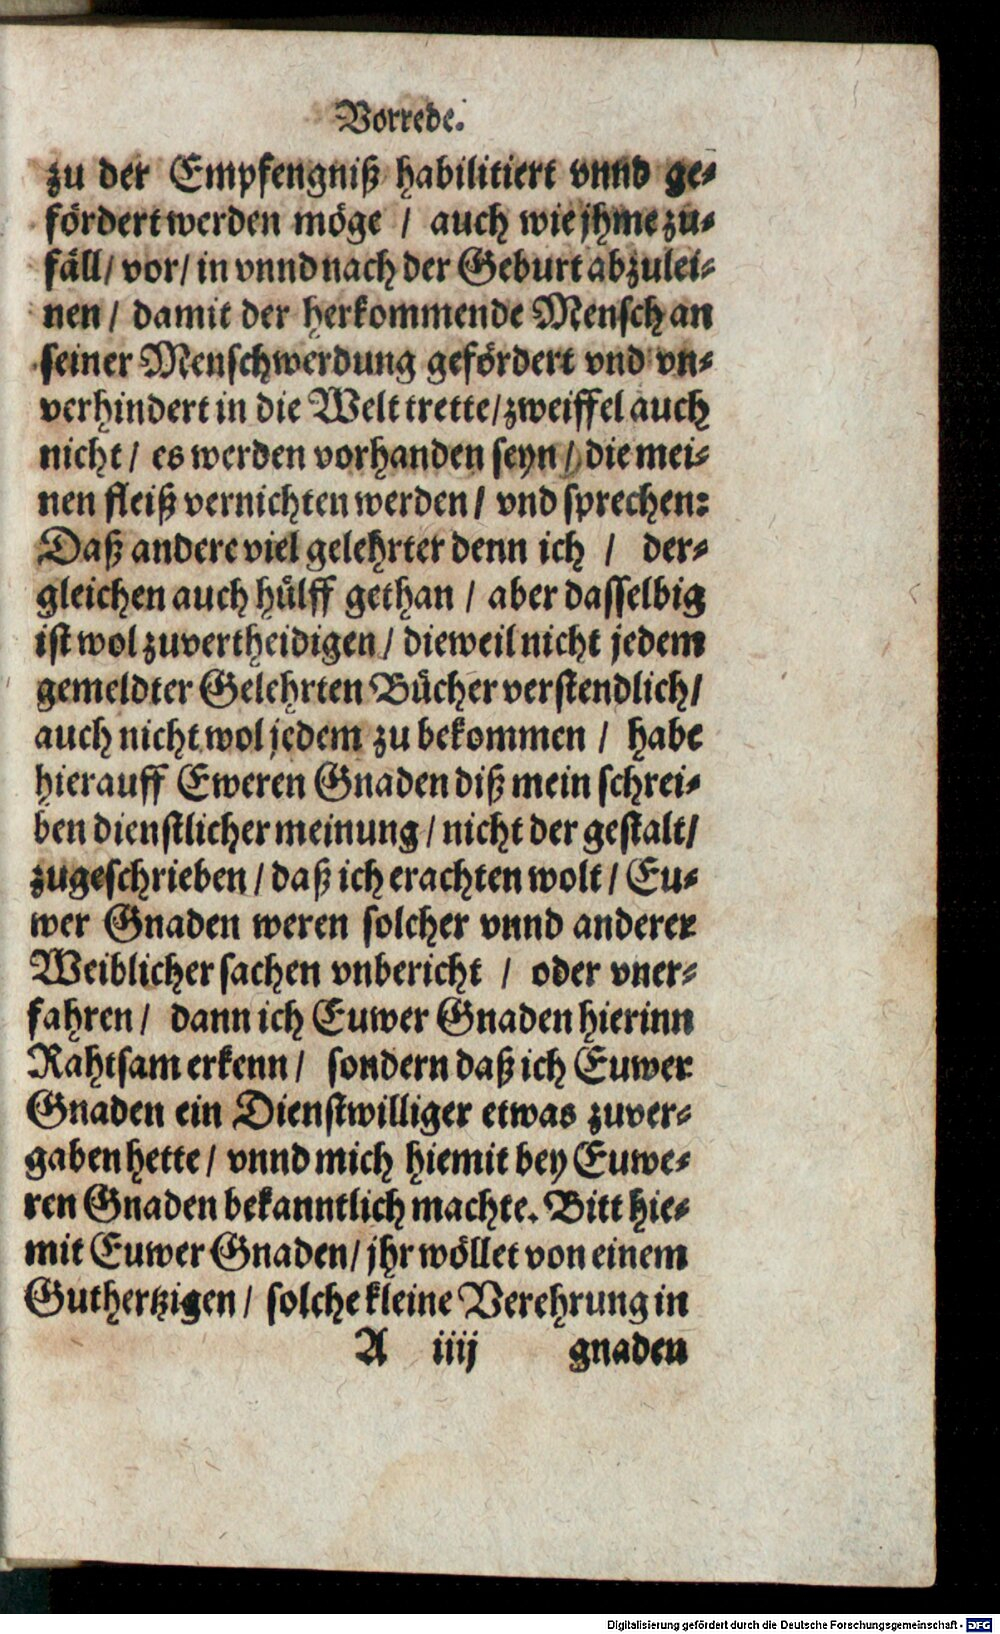 Vorrede.
zu der Empfengniß habilitiert vnnd ge-
fördert werden möge / auch wie jhme zu-
fäll / vor / in vnnd nach der Geburt abzulei-
nen / damit der herkommende Mensch an
seiner Menschwerdung gefördert vnd vn-
verhindert in die Welt trette / zweiffel auch
nicht / es werden vorhanden seyn / die mei-
nen fleiß vernichten werden / vnd sprechen:
Daß andere viel gelehrter denn ich / der-
gleichen auch hülff gethan / aber dasselbig
ist wol zuvertheidigen / dieweil nicht jedem
gemeldter Gelehrten Bücher verstendlich /
auch nicht wol jedem zu bekommen / habe
hierauff Eweren Gnaden diß mein schrei-
ben dienstlicher meinung / nicht der gestalt /
zugeschrieben / daß ich erachten wolt / Eu-
wer Gnaden weren solcher vnnd anderer
Weiblicher sachen vnbericht / oder vner-
fahren / dann ich Euwer Gnaden hierinn
Rahtsam erkenn / sondern daß ich Euwer
Gnaden ein Dienstwilliger etwas zuver-
gaben hette / vnnd mich hiemit bey Euwe-
ren Gnaden bekanntlich machte. Bitt hie-
mit Euwer Gnaden / jhr wöllet von einem
Guthertzigen / solche kleine Verehrung in
A iiij gnaden
Digitalisierung gefördert durch die Deutsche Forschungsgemeinschaft - DFG